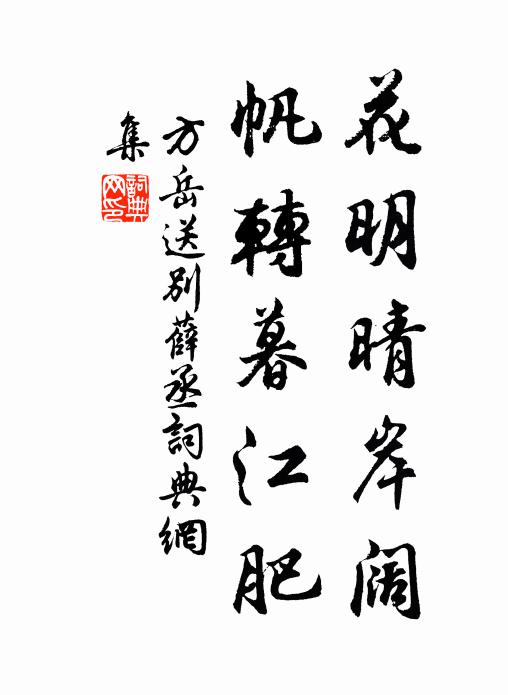 花明晴岸阔
帆轉暮江肥
方岳送别薛丞詞典網
集
詞典网印